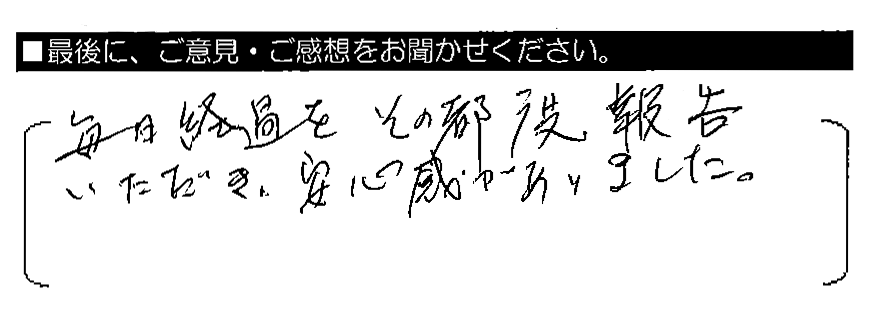 ■最後に、ご意見・ご感想をお聞かせください。
毎日経過をその都度報告
いただき、安心感がありました。